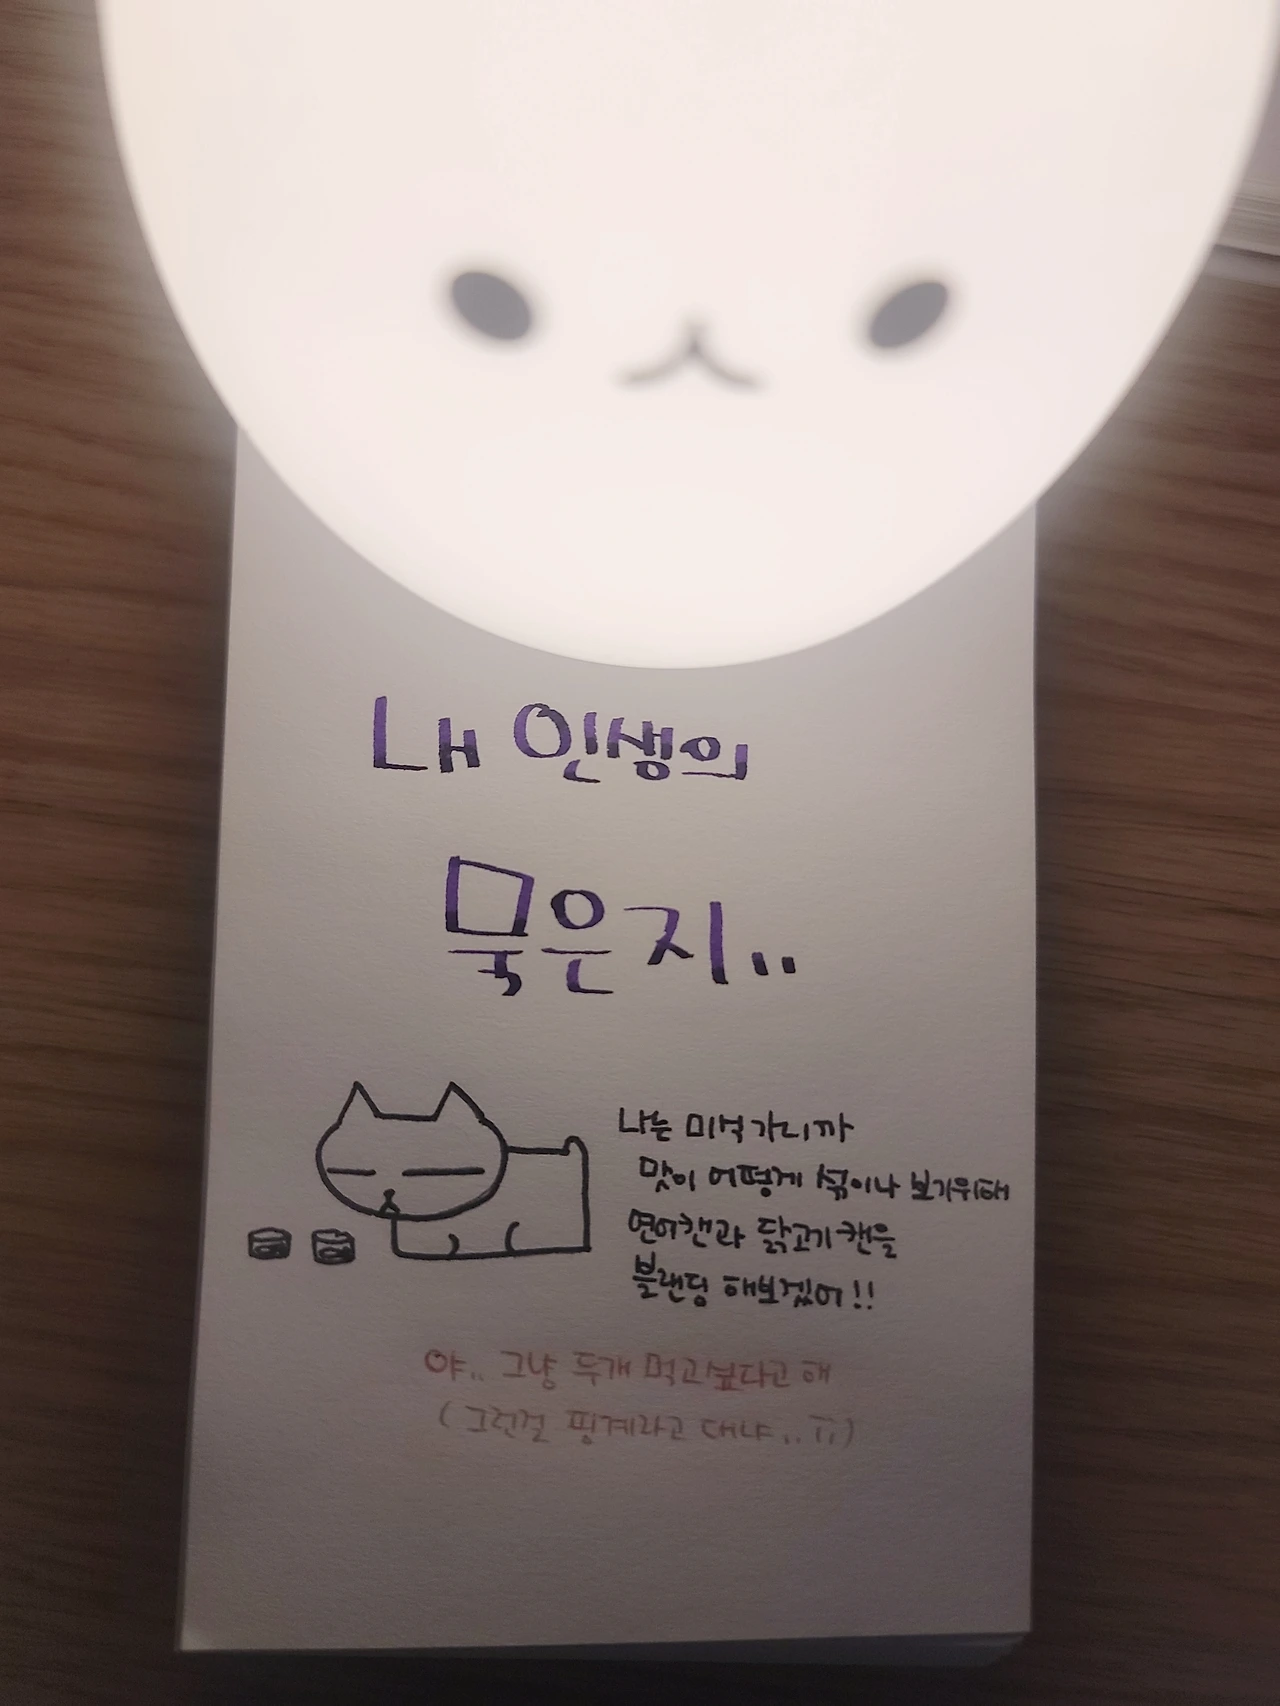 내 인생의
묵은지..
나는 미식가니까
맛이 어떻게 섞이나 보기위해
연어캔과 닭고기캔을
블랜딩 해보겠어!!
야.. 그냥 두개 먹고싶다고 해
( 그런걸 핑계라고 대냐..ㅠ)